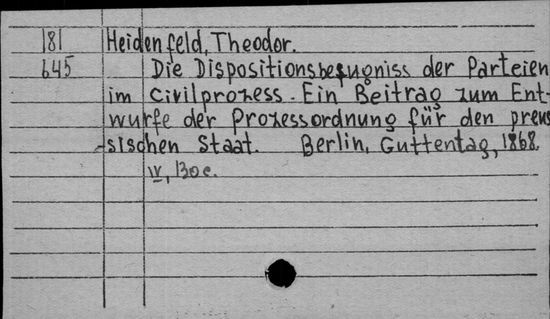 181 Heidenfeld, Theodor.
645 Die Dispositionsbefugniss der Parteien
im Civilprozess. Ein Beitrag zum Ent-
wurfe der Prozessordnung für den preus
-sischen Staat. Berlin, Guttentag, 1868.
IV, 130 c.